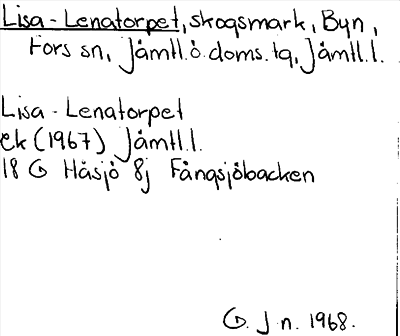 Lisa-Lenatorpet, skogsmark, Byn,
Fors sn, Jämtl.ö.doms.tg, Jämtl.l.
Lisa-Lenatorpet
ek (1967) Jämtl.l.
18 G Håsjö 8j Fångsjöbacken
G. J n. 1968.